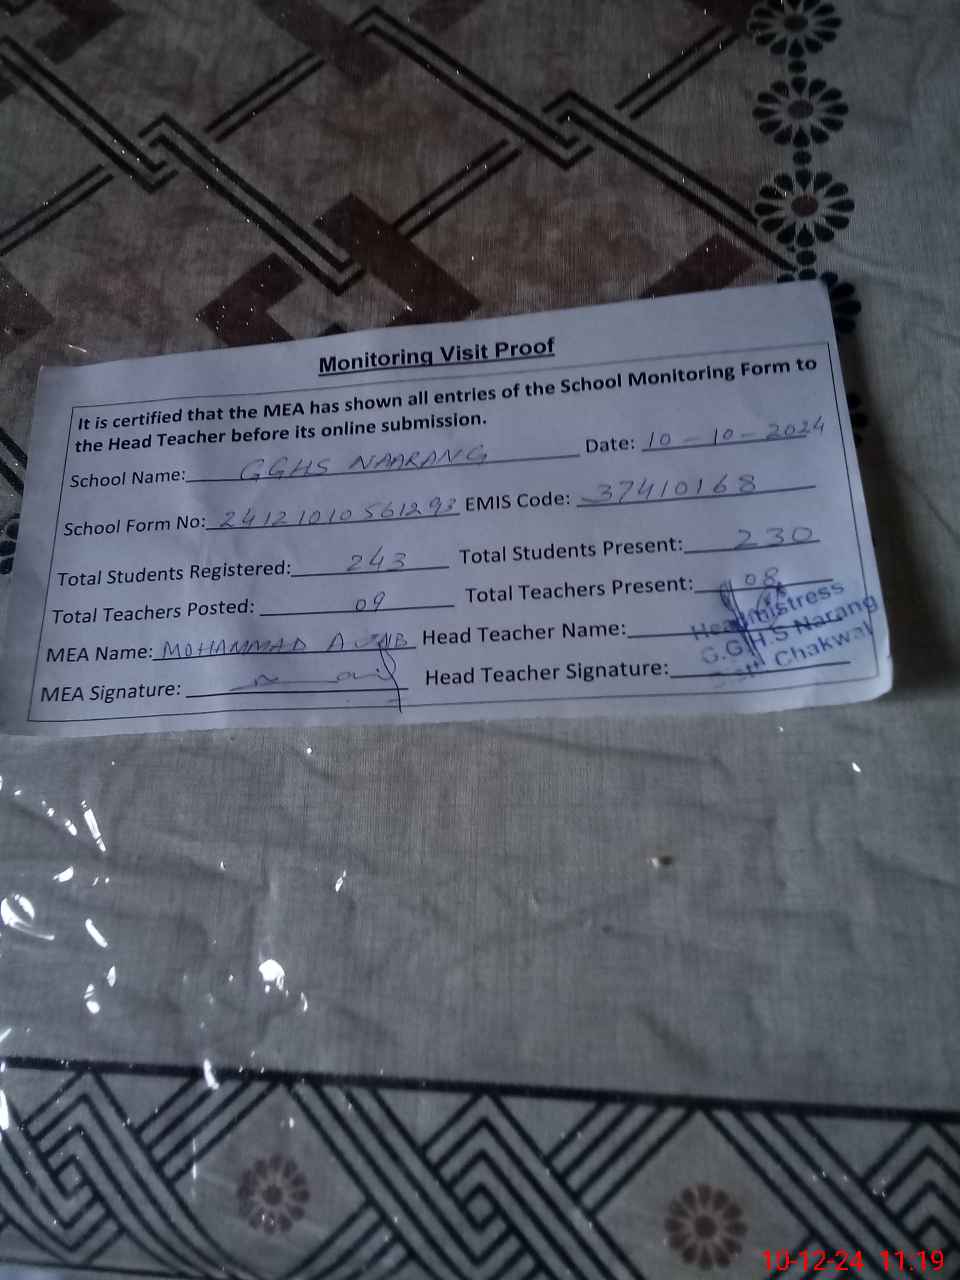 Monitoring Visit Proof
It is certified that the MEA has shown all entries of the School Monitoring Form to
the Head Teacher before its online submission.
School Name: GGHS NAARANG Date: 10-10-2024
School Form No: 2412101056129 EMIS Code: 37410168
Total Students Registered: 243 Total Students Present: 230
Total Teachers Posted: 09 Total Teachers Present: 08
MEA Name: MOHAMMAD Head Teacher Name:
MEA Signature: Head Teacher Signature:
Headmistress
G.G.H.S Narang
Chakwal
10-12-24 11:19